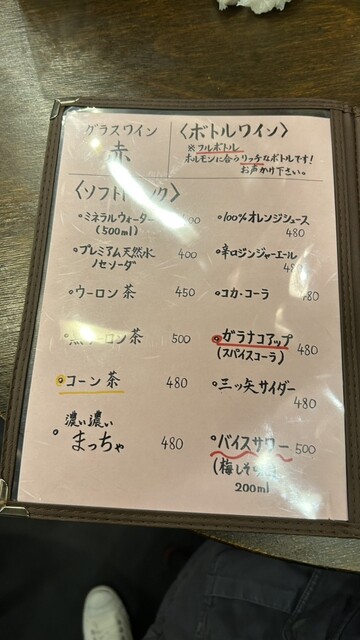 グラスワイン
赤
〈ボトルワイン〉
※フルボトル
ホルモンに合うリッチなボトルです!
お声かけ下さい。
〈ソフトドリンク〉
ミネラルウォーター
(500ml)
プレミアム天然水 400
ノセソーダ
ウーロン茶 450
ウーロン茶 500
コーン茶 480
濃い濃い
まっちゃ 480
100%オレンジジュース
480
辛口ジンジャーエール
480
コカ・コーラ 480
ガラナコアップ 480
(スパイスコーラ)
三ツ矢サイダー
480
バイスサワー 500
(梅しそ
200ml